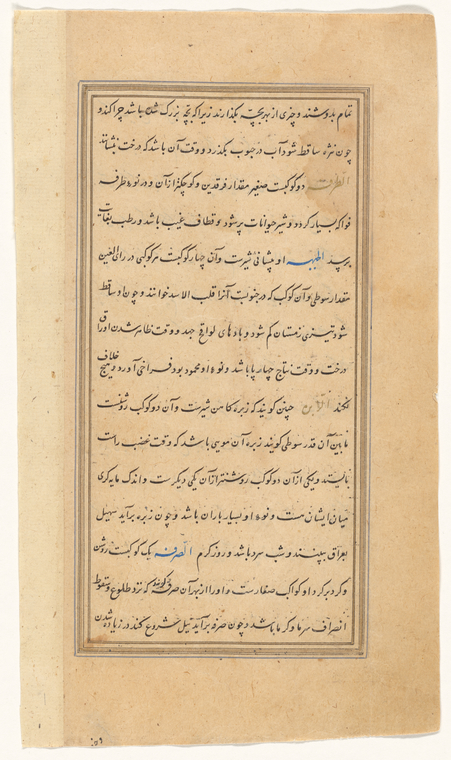 تمام بدوشند و چیزی از بهر بچه بگذارند زیرا که بچه بزرگ شده باشد چرا کند و
چون نثره ساقط شود آب در چوب بگذرد و وقت آن باشد که درخت بنشانند
الطرفه دو کوکبست صغیر مقدار فرقدین و کوچکتر از آن و در نوء طرفه
فواکه بسیار گردد و شیر حیوانات پر شود و قطاف عنب باشد و رطب بغایت
برسد الجبهه او پیشانی شیرست و آن چهار کوکبست هر کوکبی در رای العین
مقدار سوطی و آن کوکب که در جنوبست آنرا قلب الاسد خوانند و چون او ساقط
شود تیزی زمستان کم شود و بادهای لواقح جهد و وقت ظاهر شدن اوراق
درخت و وقت نتاج چهارپا باشد و نوء او محمود بود فراخی آورد و هیچ خلاف
نکند چنین گویند که زبره کاهن شیرست و آن دو کوکب روشنست
ما بین آن قدر سوطی گویند زبره آن موی باشد که وقت غضب راست
بایستد و یکی از آن دو کوکب روشنتر از آن یکی دیگرست و اندک مایه کژی
میان ایشان هست و نوء او بسیار باران باشد و چون زبره برآید سهیل
بعراق ببینند و شب سرد باشد و روز گرم الصرفه یک کوکبست روشن
و گرد بر گرد او کواکب صغارست و او را از بهر آن صرفه گویند که نزد طلوع و سقوط
انصراف سرما و گرما باشد و چون صرفه برآید نیل شروع کند در زیاده شدن